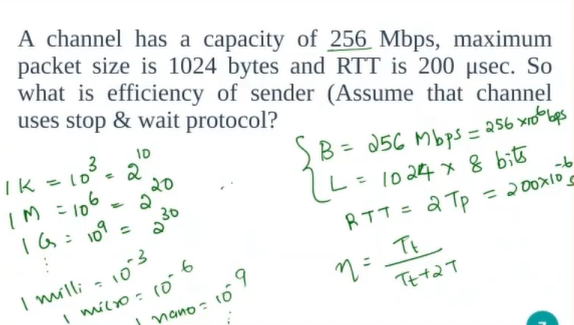 A channel has a capacity of 256 Mbps, maximum
packet size is 1024 bytes and RTT is 200 μsec. So
what is efficiency of sender (Assume that channel
uses stop & wait protocol?
1K = 10³ = 2¹⁰
1M = 10⁶ = 2²⁰
1G = 10⁹ = 2³⁰
⋮
1 milli = 10⁻³
1 micro = 10⁻⁶
1 nano = 10⁻⁹
⋮
B = 256 Mbps = 256 × 10⁶ bps
L = 1024 × 8 bits
RTT = 2Tp = 200×10⁻⁶ s
η = Tt / Tt+2T